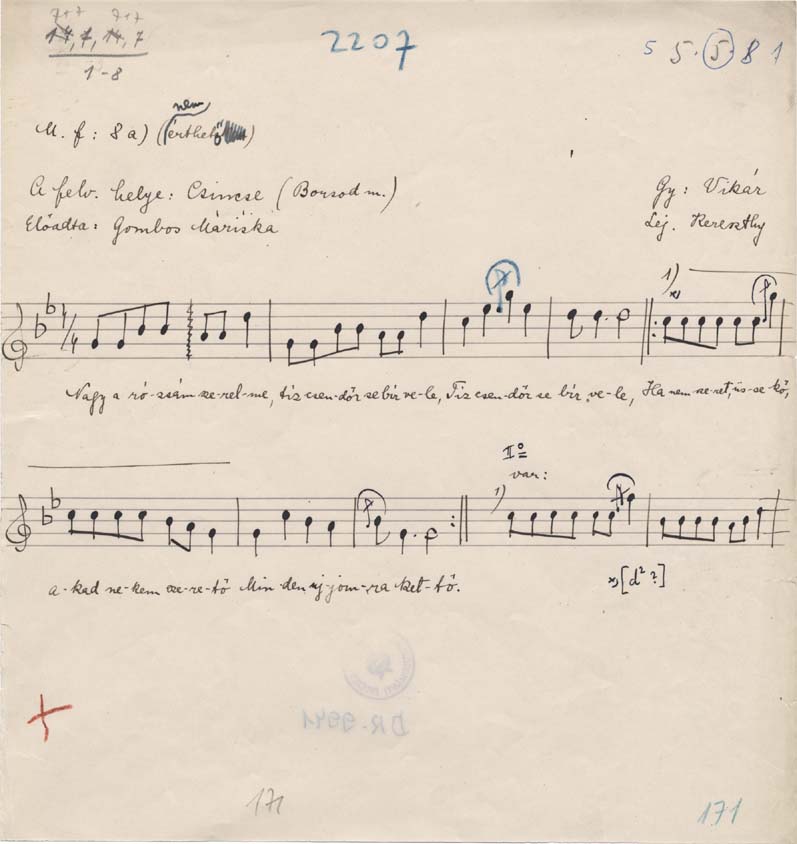 7+7 7+7
14, 7, 14, 7
1-8
2207
5 5. 5. 8 1
M. f: 8 a) (nem érthető)
A felv. helye: Csincse (Borsod m.)
Gy: Vikár
Előadta: Gombos Máriska
Lej. Kereszthy
1)
x)
Nagy a ró-zsám sze-rel-me, tiz csen-dőr se bir ve-le, Tiz csen-dőr se bir ve-le, Ha nem sze-ret, üs-se kő,
IIº
var:
1)
a-kad ne-kem sze-re-tő Min-den uj-jom-ra ket-tő.
x) [d² ?]
DR. 9941
171
171